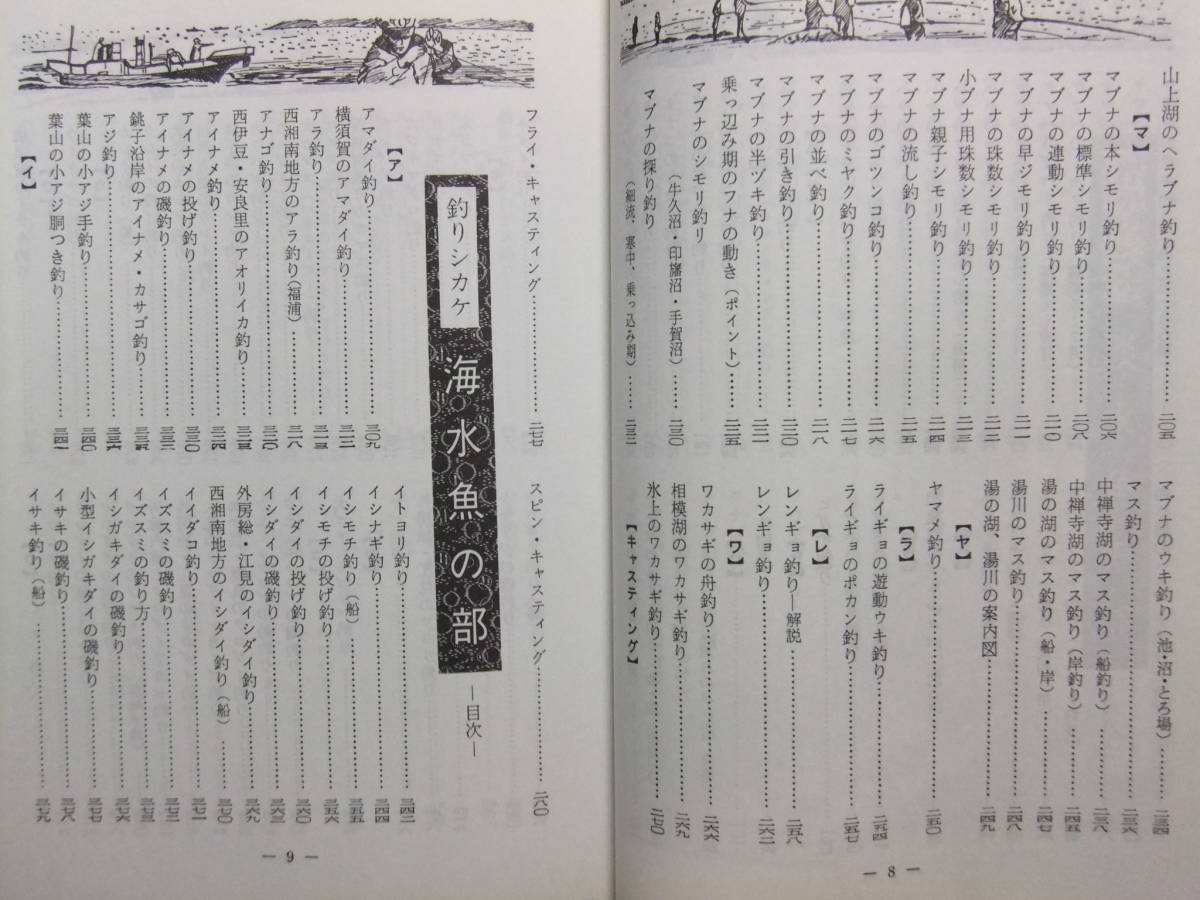 山上湖のヘラブナ釣り……二〇五
【マ】
マブナの本シモリ釣り……二〇六
マブナの標準シモリ釣り……二〇八
マブナの連動シモリ釣り……二一〇
マブナの早ジモリ釣り……二一一
マブナの珠数シモリ釣り……二一二
小ブナ用珠数シモリ釣り……二一三
マブナ親子シモリ釣り……二一四
マブナの流し釣り……二一五
マブナのゴツンコ釣り……二一六
マブナのミャク釣り……二一七
マブナの並べ釣り……二一八
マブナの引き釣り……二二〇
マブナの半ヅキ釣り……二二一
乗っ込み期のフナの動き(ポイント)……二二五
マブナのシモリ釣り
(牛久沼・印旛沼・手賀沼)……二三〇
マブナの探り釣り
(細流、寒中、乗っ込み期)……二三二
マブナのウキ釣り(池・沼・とろ場)……二三四
マス釣り……二三六
中禅寺湖のマス釣り(船釣り)……二三八
中禅寺湖のマス釣り(岸釣り)……二四五
湯の湖のマス釣り(船・岸)……二四七
湯川のマス釣り……二四八
湯の湖、湯川の案内図……二四九
【ヤ】
ヤマメ釣り……二五〇
【ラ】
ライギョの遊動ウキ釣り……二五四
ライギョのポカン釣り……二五七
【レ】
レンギョ釣り—解説……二五八
レンギョ釣り……二六二
【ワ】
ワカサギの舟釣り……二六六
相模湖のワカサギ釣り……二六九
氷上のワカサギ釣り……二七〇
【キャスティング】
— 8 —
フライ・キャスティング……二七七
スピン・キャスティング……二八〇
釣りシカケ 海水魚の部
—目次—
【ア】
アマダイ釣り……三〇九
横須賀のアマダイ釣り……三一二
アラ釣り……三一五
西湘南地方のアラ釣り(福浦)……三一八
アナゴ釣り……三二〇
西伊豆・安良里のアオリイカ釣り……三二三
アイナメ釣り……三二四
アイナメの投げ釣り……三三〇
アイナメの磯釣り……三三二
銚子沿岸のアイナメ・カサゴ釣り……三三五
アジ釣り……三三六
葉山の小アジ手釣り……三四〇
葉山の小アジ胴つき釣り……三四一
【イ】
イトヨリ釣り……三四二
イシナギ釣り……三四四
イシモチ釣り(船)……三五五
イシモチの投げ釣り……三五六
イシダイの投げ釣り……三六〇
イシダイの磯釣り……三六三
外房総・江見のイシダイ釣り……三六九
西湘南地方のイシダイ釣り(船)……三七〇
イイダコ釣り……三七一
イズスミの磯釣り……三七二
イズスミの釣り方……三七三
イシガキダイの磯釣り……三七六
小型イシガキダイの磯釣り……三七七
イサキの磯釣り……三七八
イサキ釣り(船)……三七九
— 9 —